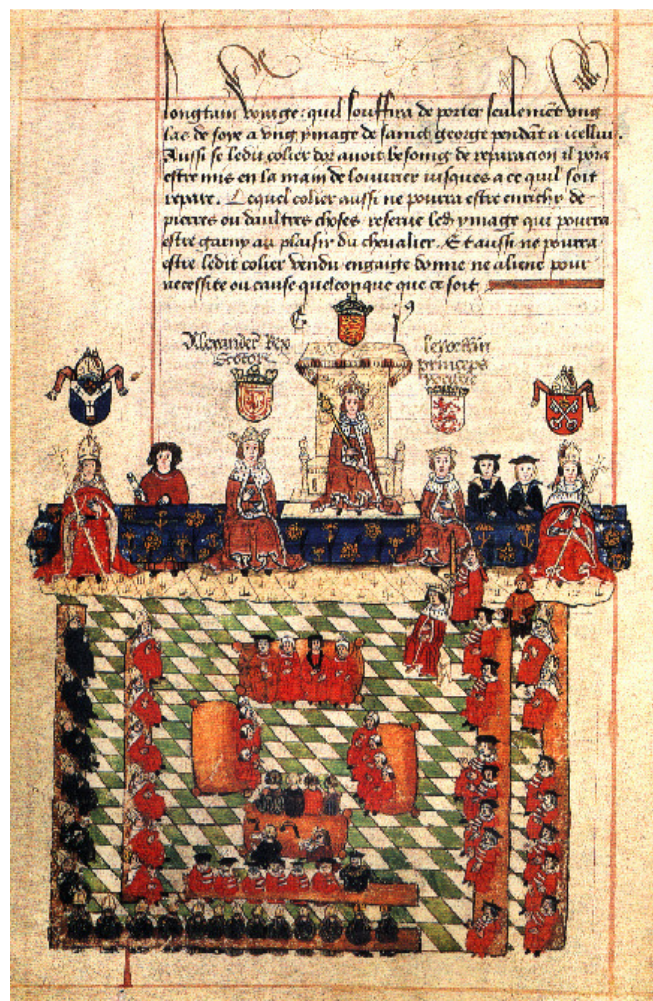 longtain voiage: quil souffira de porter seulemēt ung
las de soye a ung ymage de sainct george pendāt a icellui.
Aussi se ledit colier dor avoit besoing de reparacion il pora
estre mis en la main de louvrier iusques a ce quil soit
repare. Lequel colier aussi ne pourra estre enrichy de
pierres ou daultres choses reserve led ymage qui pourra
estre garny au plaisir du chevalier. Et aussi ne pourra
estre ledit colier vendu engaige donne ne aliene pour
necessite ou cause quelconque que ce soit
Alexander Rex
Scotor
princeps